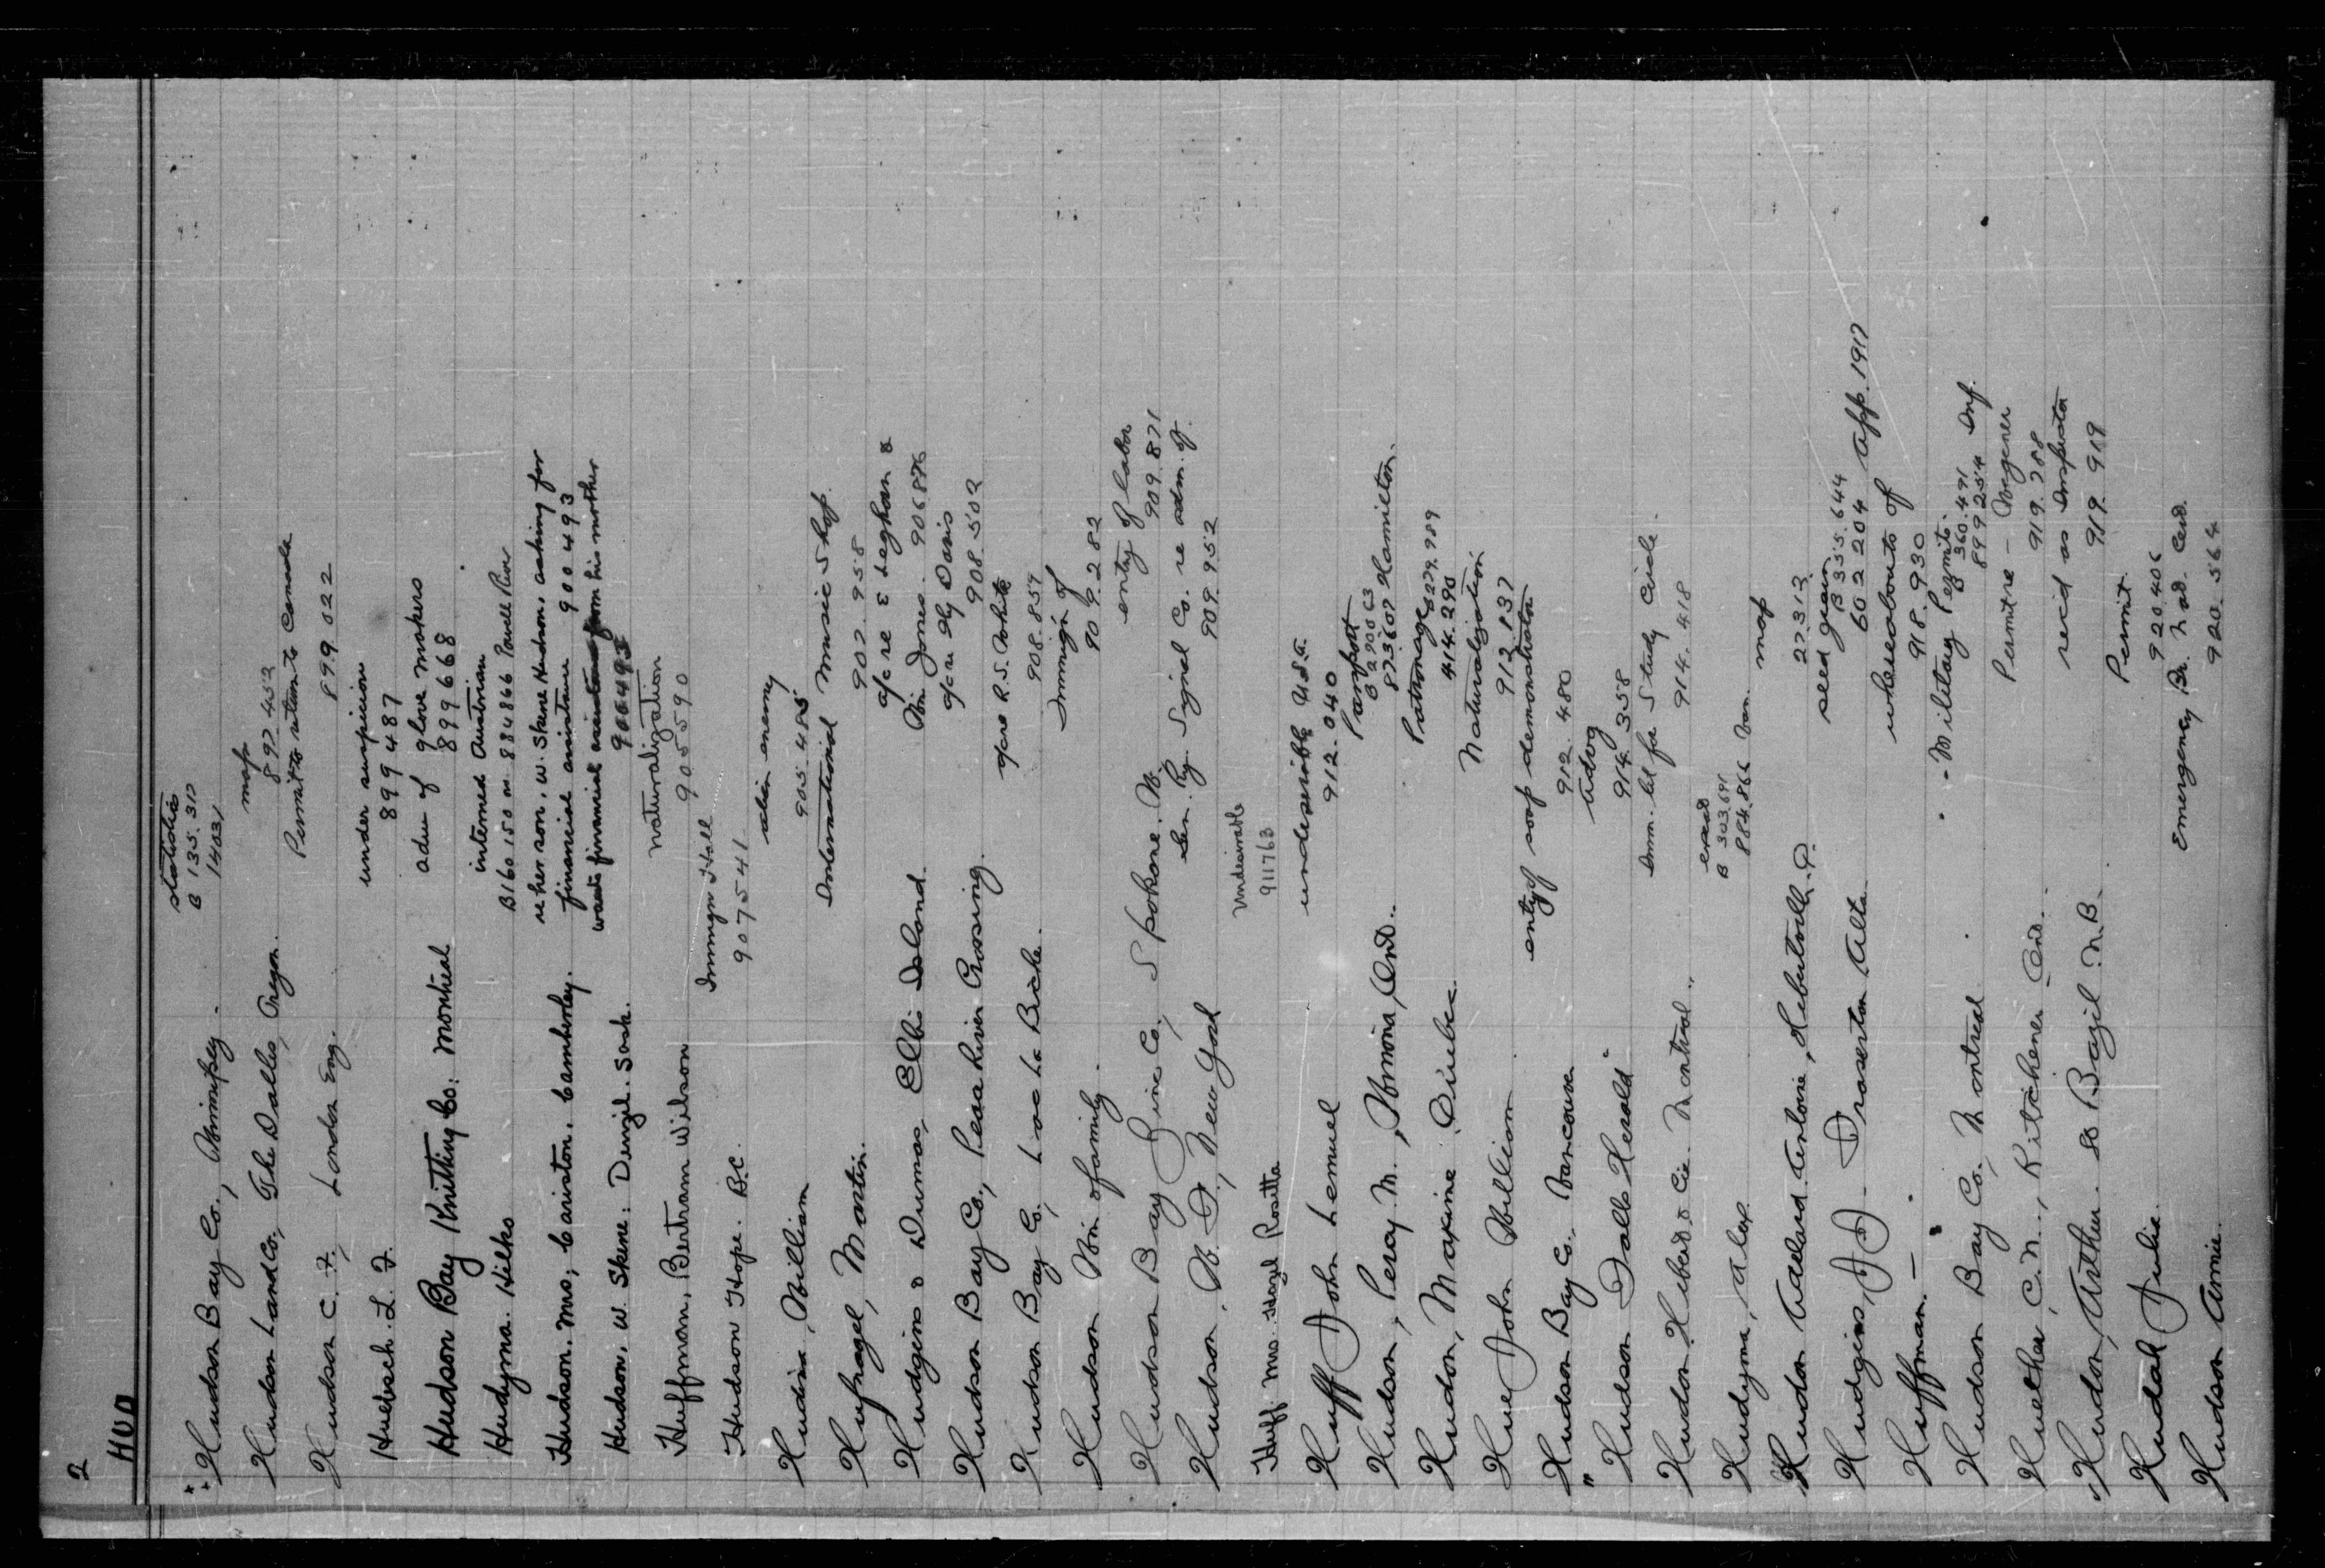 2
HUD
Hudson Bay Co., Winnipeg. statistics
B 135.317
14031
Hudson Land Co, The Dalles, Oregon. map
892 452
Hudson C. F., London Eng. Permit to return to Canada
899.022
Huebsch. L. F. under suspicion
899487
Hudson Bay Knitting Co: Montreal adm of glove makers
899668
Hudyma. Hilko interned Austrian
B160150 on 884866 Powell River
Hudson. Mrs; Cariston. Camberley. re her son, W. Skene Hudson, asking for
financial assistance 900493
Hudson, W. Skene: Denzil. Sask. wants financial assistance from his mother
900493
Huffman, Bertram Wilson naturalization
905590
Hudson Hope. B.C. Immgn Hall
907541
Hudin, William alien enemy
905.485
Hufnagel, Martin. International Music Shop.
902.958
Hudgins & Dumas, Ellis Island. a/c re E Leghorn &
Wm. Jones. 906876
Hudson Bay Co., Peace River Crossing. a/c re Hy Davis
908.502
Hudson Bay Co, Lac La Biche. a/c re R.S. White
908.857
Hudson Wm & family. Immign of
909.282
Hudson Bay Zinc Co., Spokane. W. entry of labor
909.871
Hudson, W. D., New York Gen. Ry. Signal Co. re adm. of.
909.952
Huff Mrs Hazel Rosetta Undesirable
911763
Huff John Lemuel undesirable U.S.A.
912.040
Hudson, Percy M., Winona, Ont.. Passport
B 290063
873607 Hamilton.
Hudon, Maxime, Quebec. Patronage
B279.989
414.290
Hue John William Naturalization
912.837
Hudson Bay Co., Vancouver entry of soap demonstrator
912.480
" Hudson Falls Herald" Advg
914.358
Hudon Hebert & Cie. Montreal. Imm. lit for Study Circle.
914.418
Hudyma, Alex ex-cd
B 303.691
884.866 Van.
Hudon Adelard Antoine, Hebertville. P.Q. map
27313
Hudgins, J J. Fraserton Alta. seed grain
B 355.644
602204 App. 1917
Huffman. — whereabouts of
918.930
Hudson Bay Co., Montreal. - Military Permits.
B 360.491
899254 Inf.
Huether, C. N., Kitchener Ont. Permit re - Wegener
919.288
Hudon, Arthur. St Bazil N.B. rec'd as Inspector
919.919
Hudak Julie. Permit.
920406
Hudson Annie. Emergency Br. Nat. Cert.
920.564